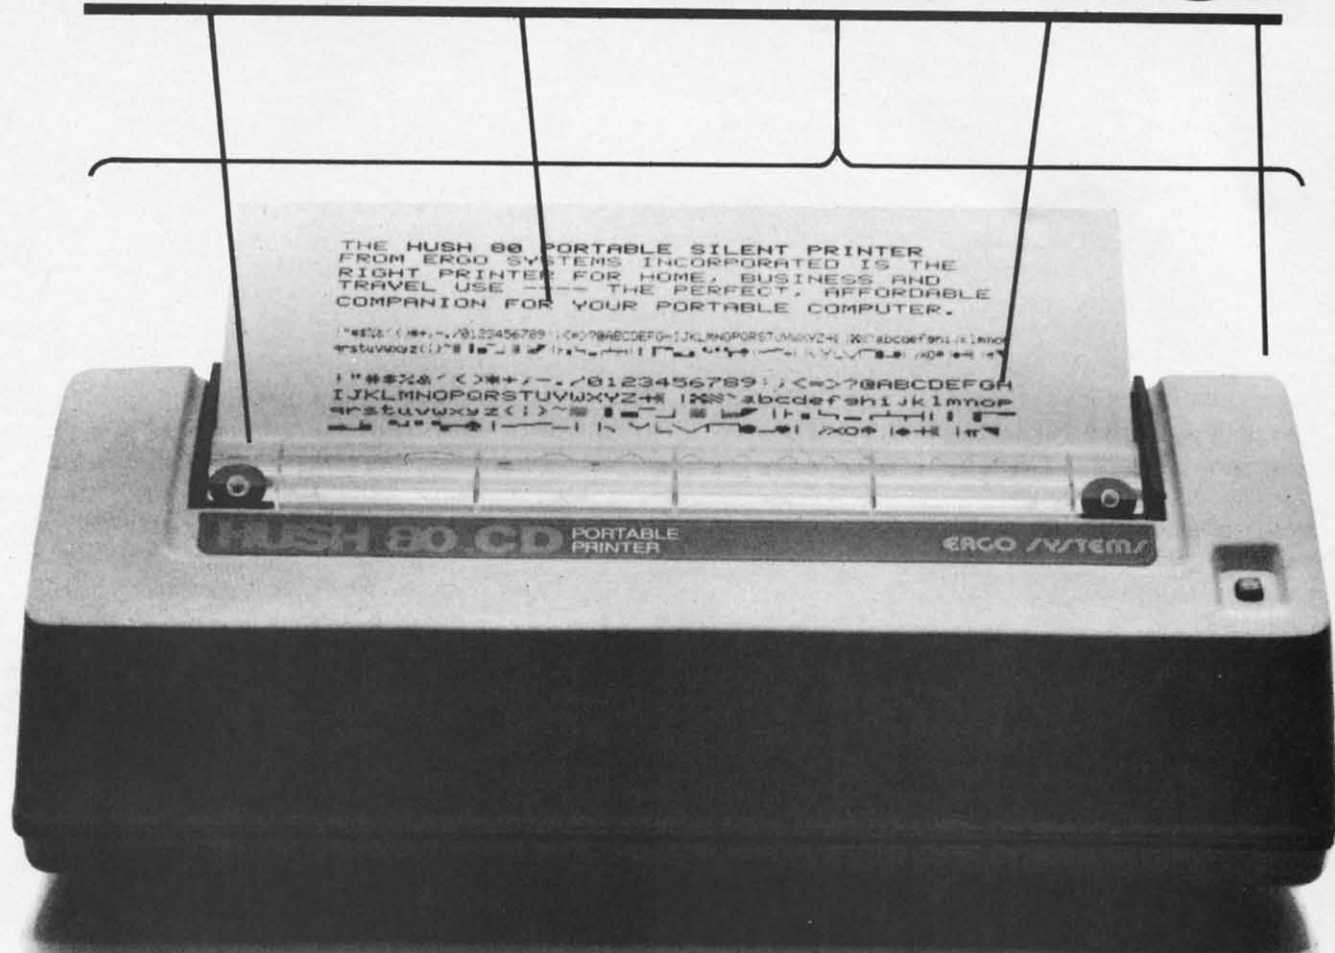 THE HUSH 80 PORTABLE SILENT PRINTER
FROM ERGO SYSTEMS INCORPORATED IS THE
RIGHT PRINTER FOR HOME, BUSINESS AND
TRAVEL USE ---- THE PERFECT, AFFORDABLE
COMPANION FOR YOUR PORTABLE COMPUTER.
!"#$%&'()*+,-./0123456789:;<=>?@ABCDEFGHIJKLMNOPQRSTUVWXYZ abcdefghijklmnop
qrstuvwxyz
!"#$%&'()*+,-./0123456789:;<=>?@ABCDEFGH
IJKLMNOPQRSTUVWXYZ abcdefghijklmnop
qrstuvwxyz
HUSH 80 CD PORTABLE
PRINTER
ERGO SYSTEMS